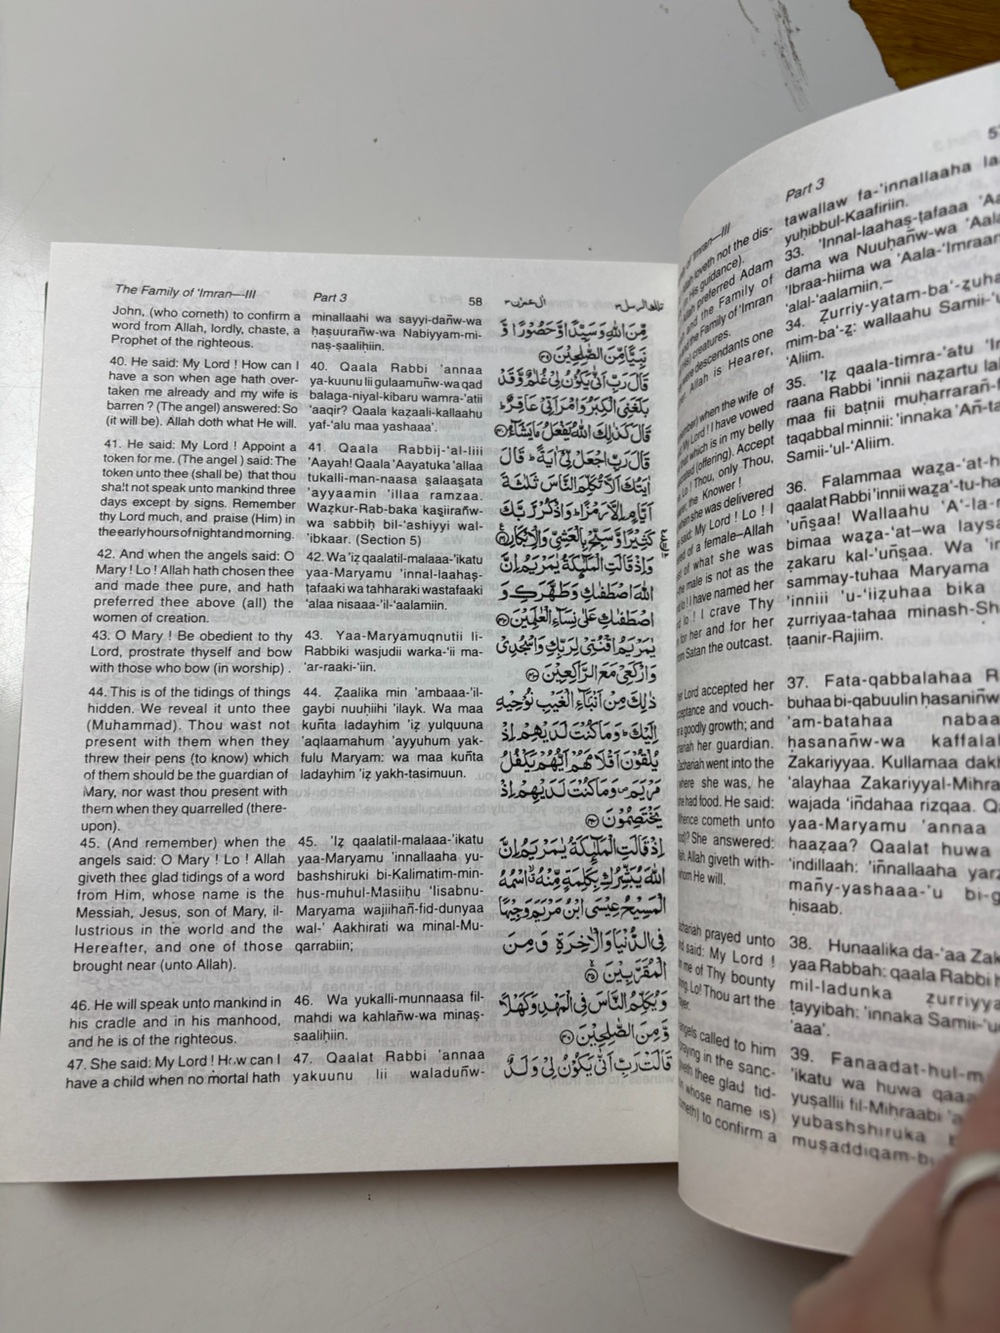 The Family of 'Imran—III
Part 3
58
John, (who cometh) to confirm a
word from Allah, lordly, chaste, a
Prophet of the righteous.
40. He said: My Lord ! How can I
have a son when age hath over-
taken me already and my wife is
barren ? (The angel) answered: So
(it will be). Allah doth what He will.
41. He said: My Lord ! Appoint a
token for me. (The angel ) said: The
token unto thee (shall be) that thou
shalt not speak unto mankind three
days except by signs. Remember
thy Lord much, and praise (Him) in
the early hours of night and morning.
42. And when the angels said: O
Mary ! Lo ! Allah hath chosen thee
and made thee pure, and hath
preferred thee above (all) the
women of creation.
43. O Mary ! Be obedient to thy
Lord, prostrate thyself and bow
with those who bow (in worship) .
44. This is of the tidings of things
hidden. We reveal it unto thee
(Muhammad). Thou wast not
present with them when they
threw their pens (to know) which
of them should be the guardian of
Mary, nor wast thou present with
them when they quarrelled (there-
upon).
45. (And remember) when the
angels said: O Mary ! Lo ! Allah
giveth thee glad tidings of a word
from Him, whose name is the
Messiah, Jesus, son of Mary, il-
lustrious in the world and the
Hereafter, and one of those
brought near (unto Allah).
46. He will speak unto mankind in
his cradle and in his manhood,
and he is of the righteous.
47. She said: My Lord ! How can I
have a child when no mortal hath
minallaahi wa sayyi-dañw-wa
ḥaṣuurañw-wa Nabiyyam-mi-
naṣ-ṣaaliḥiin.
40. Qaala Rabbi 'annaa
ya-kuunu lii gulaamuñw-wa qad
balaga-niyal-kibaru wamra-'atii
'aaqir? Qaala kaẓaali-kallaahu
yaf-'alu maa yashaaa'.
41. Qaala Rabbij-'al-liii
'Aayah! Qaala 'Aayatuka 'allaa
tukalli-man-naasa ṣalaaṣata
'ayyaamin 'illaa ramzaa.
Waẓkur-Rab-baka kaṣiirañw-
wa sabbiḥ bil-'ashiyyi wal-
'ibkaar. (Section 5)
42. Wa 'iẓ qaalatil-malaaa-'ikatu
yaa-Maryamu 'innal-laahaṣ-
ṭafaaki wa tahharaki wastafaaki
'alaa nisaaa-'il-'aalamiin.
43. Yaa-Maryamuqnutii li-
Rabbiki wasjudii warka-'ii ma-
'ar-raaki-'iin.
44. Ẓaalika min 'ambaaa-'il-
gaybi nuuḥiihi 'ilayk. Wa maa
kuñta ladayhim 'iẓ yulquuna
'aqlaamahum 'ayyuhum yak-
fulu Maryam: wa maa kuñta
ladayhim 'iẓ yakh-tasimuun.
45. 'Iẓ qaalatil-malaaa-'ikatu
yaa-Maryamu 'innallaaha yu-
bashshiruki bi-Kalimatim-min-
hus-muhul-Masiiḥu 'Iisabnu-
Maryama wajiihañ-fid-dunyaa
wal-' Aakhirati wa minal-Mu-
qarrabiin;
46. Wa yukalli-munnaasa fil-
mahdi wa kahlañw-wa minaṣ-
ṣaaliḥiin.
47. Qaalat Rabbi 'annaa
yakuunu lii waladuñw-
تلك الرسل ٣ اٰل عمرٰن ٣
مِّنَ اللّٰهِ وَسَيِّدًا وَّحَصُوْرًا وَّ
نَبِيًّا مِّنَ الصّٰلِحِيْنَ ۝۳۹
قَالَ رَبِّ اَنّٰى يَكُوْنُ لِيْ غُلٰمٌ وَّقَدْ
بَلَغَنِيَ الْكِبَرُ وَامْرَاَتِيْ عَاقِرٌ ؕ
قَالَ كَذٰلِكَ اللّٰهُ يَفْعَلُ مَا يَشَآءُ ۝۴۰
قَالَ رَبِّ اجْعَلْ لِّيْٓ اٰيَةً ؕ قَالَ
اٰيَتُكَ اَلَّا تُكَلِّمَ النَّاسَ ثَلٰثَةَ
اَيَّامٍ اِلَّا رَمْزًا ؕ وَاذْكُرْ رَّبَّكَ
كَثِيْرًا وَّسَبِّحْ بِالْعَشِيِّ وَالْاِبْكَارِ ۝۴۱
وَاِذْ قَالَتِ الْمَلٰٓئِكَةُ يٰمَرْيَمُ اِنَّ
اللّٰهَ اصْطَفٰىكِ وَطَهَّرَكِ وَ
اصْطَفٰىكِ عَلٰى نِسَآءِ الْعٰلَمِيْنَ ۝۴۲
يٰمَرْيَمُ اقْنُتِيْ لِرَبِّكِ وَاسْجُدِيْ
وَارْكَعِيْ مَعَ الرّٰكِعِيْنَ ۝۴۳
ذٰلِكَ مِنْ اَنْۢبَآءِ الْغَيْبِ نُوْحِيْهِ
اِلَيْكَ ؕ وَمَا كُنْتَ لَدَيْهِمْ اِذْ
يُلْقُوْنَ اَقْلَامَهُمْ اَيُّهُمْ يَكْفُلُ
مَرْيَمَ ۪ وَمَا كُنْتَ لَدَيْهِمْ اِذْ
يَخْتَصِمُوْنَ ۝۴۴
اِذْ قَالَتِ الْمَلٰٓئِكَةُ يٰمَرْيَمُ اِنَّ
اللّٰهَ يُبَشِّرُكِ بِكَلِمَةٍ مِّنْهُ ۖ اسْمُهُ
الْمَسِيْحُ عِيْسَى ابْنُ مَرْيَمَ وَجِيْهًا
فِي الدُّنْيَا وَالْاٰخِرَةِ وَمِنَ
الْمُقَرَّبِيْنَ ۝۴۵
وَيُكَلِّمُ النَّاسَ فِي الْمَهْدِ وَكَهْلًا
وَّمِنَ الصّٰلِحِيْنَ ۝۴۶
قَالَتْ رَبِّ اَنّٰى يَكُوْنُ لِيْ وَلَدٌ
'Imran—III
Part 3
loveth not the dis-
His guidance).
preferred Adam
and the Family of
the Family of 'Imran
creatures.
descendants one
Allah is Hearer,
when the wife of
My Lord ! I have vowed
which is in my belly
(offering). Accept
Lo ! Thou, only Thou,
the Knower !
when she was delivered
said: My Lord ! Lo ! I
of a female–Allah
of what she was
male is not as the
I have named her
lo ! I crave Thy
for her and for her
from Satan the outcast.
Lord accepted her
and vouch-
a goodly growth; and
her guardian.
Zachariah went into the
where she was, he
she had food. He said:
Whence cometh unto
She answered:
Allah giveth with-
whom He will.
prayed unto
said: My Lord !
me of Thy bounty
Lo! Thou art the
called to him
praying in the sanc-
thee glad tid-
whose name is)
to confirm a
tawallaw fa-'innallaaha la
yuḥibbul-Kaafiriin.
33. 'Innal-laahaṣ-ṭafaaa 'Aa
dama wa Nuuḥañw-wa 'Aala
'Ibraa-hiima wa 'Aala-'Imraan
'alal-'aalamiin.–
34. Ẓurriy-yatam-ba'-ẓuha
mim-ba'-ẓ: wallaahu Samii-'u
'Aliim.
35. 'Iẓ qaala-timra-'atu 'Im
raana Rabbi 'innii naẓartu la
maa fii baṭnii muḥarrarañ-f
taqabbal minnii: 'innaka 'Añ-ta
Samii-'ul-'Aliim.
36. Falammaa waẓa-'at-h
qaalat Rabbi 'innii waẓa'-tu-ha
'uñṣaa! Wallaahu 'A'-la-
bimaa waẓa-'at–wa laysa
ẓakaru kal-'uñṣaa. Wa 'in
sammay-tuhaa Maryama
'inniii 'u-'iiẓuhaa bika
ẓurriyaa-tahaa minash-Sh
ṭaanir-Rajiim.
37. Fata-qabbalahaa R
buhaa bi-qabuulin ḥasaniñw
'am-batahaa nabaa
ḥasanañw-wa kaffalah
Zakariyyaa. Kullamaa dakh
'alayhaa Zakariyyal-Mihra
wajada 'iñdahaa rizqaa. Qa
yaa-Maryamu 'annaa
haaẓaa? Qaalat huwa
'indillaah: 'iñnallaaha yarz
mañy-yashaaa-'u bi-g
ḥisaab.
38. Hunaalika da-'aa Zak
yaa Rabbah: qaala Rabbi h
mil-ladunka ẓurriyya
ṭayyibah: 'innaka Samii-'u
'aaa'.
39. Fanaadat-hul-m
'ikatu wa huwa qaaa
yuṣallii fil-Mihraabi 'a
yubashshiruka
muṣaddiqam-bi